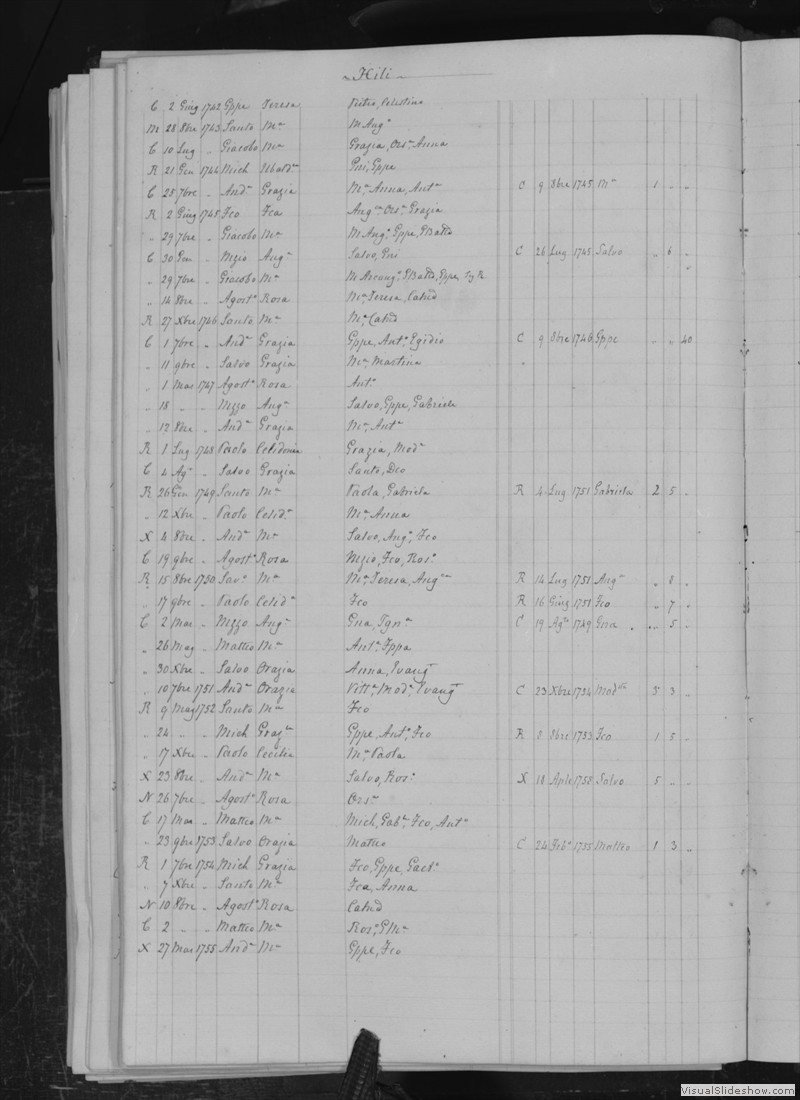 Hili
C 2 Giug 1742 Gppe Teresa Pietro, Celestina
M 28 8bre 1743 Santo Ma M Anga
C 10 Lug " Giacobo Ma Grazia, Orsa, Anna
R 21 Gen 1744 Mich Ubalda Pri, Gppe
C 25 7bre " Anda Grazia Ma Anna, Anta C 9 8bre 1745 Ma 1 " "
R 2 Giug 1745 Fco Fca Orsa, Grazia
" 29 7bre " Giacobo Ma M Anga, Gppe, GBatta
C 30 Gen " Mzio Anga Salvo, Pri C 26 Lug 1745 Salvo " 6 "
" 29 7bre " Giacobo Ma GBatta, Gppe
" 14 8bre " Agosto Rosa Ma Teresa, Catnd
R 27 Xbre 1746 Santo Ma Ma, Catnd
C 1 7bre " Anda Grazia Gppe, Anto, Egidio C 9 8bre 1746 Gppe " " 40
" 11 9bre " Salvo Grazia Ma, Martina
" 1 Mar 1747 Agosto Rosa Anto
" 18 " " Mzzo Anga Salvo, Gppe, Gabriele
" 12 8bre " Anda Grazia Ma, Anta
R 1 Lug 1748 Paolo Celidonia Grazia, Moda
C 4 Ago " Salvo Grazia Santo, Dco
R 26 Gen 1749 Santo Ma Paola, Gabriela R 4 Lug 1751 Gabriela 2 5 "
" 12 Xbre " Paolo Celida Ma Anna
X 4 8bre " Anda Ma Salvo, Ango, Fco
C 19 9bre " Agosto Rosa Mzio, Fco, Rosa
R 15 8bre 1750 Savo Ma Ma, Teresa, Anga R 14 Lug 1751 Anga " 8 "
" 17 9bre " Paolo Celida Fco R 16 Giug 1751 Fco " 7 "
C 2 Mar " Mzzo Anga Gna, Igna C 19 Ago 1749 Gna " 5 "
" 26 Mag " Matteo Ma Anta, Fppa
" 30 Xbre " Salvo Orazia Anna, Evangta
" 10 7bre 1751 Anda Orazia Vitta, Moda, Evangta C 23 Xbre 1754 Modta 3 3 "
R 9 Mag 1752 Santo Ma Fco
" 24 " " Mich Graza Gppe, Anto, Fco R 8 8bre 1753 Fco 1 5 "
" 17 Xbre " Paolo Cecilia Ma Paola
X 23 8bre " Anda Ma Salvo, Rosa X 18 Aple 1758 Salvo 5 " "
N 26 7bre " Agosto Rosa Orsa
C 17 Mar " Matteo Ma Mich, Gabe, Fco, Anto
" 23 9bre 1753 Salvo Orazia Matteo C 24 Febo 1755 Matteo 1 3 "
R 1 7bre 1754 Mich Grazia Fco, Gppe, Gaeto
" 7 Xbre " Santo Ma Fca, Anna
N 10 8bre " Agosto Rosa Catnd
C 2 " " Matteo Ma Rosa, GMa
X 27 Mar 1755 Anda Ma Gppe, Fco
VisualSlideshow.com